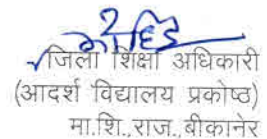 जिला शिक्षा अधिकारी
(आदर्श विद्यालय प्रकोष्ठ)
मा.शि.,राज.,बीकानेर